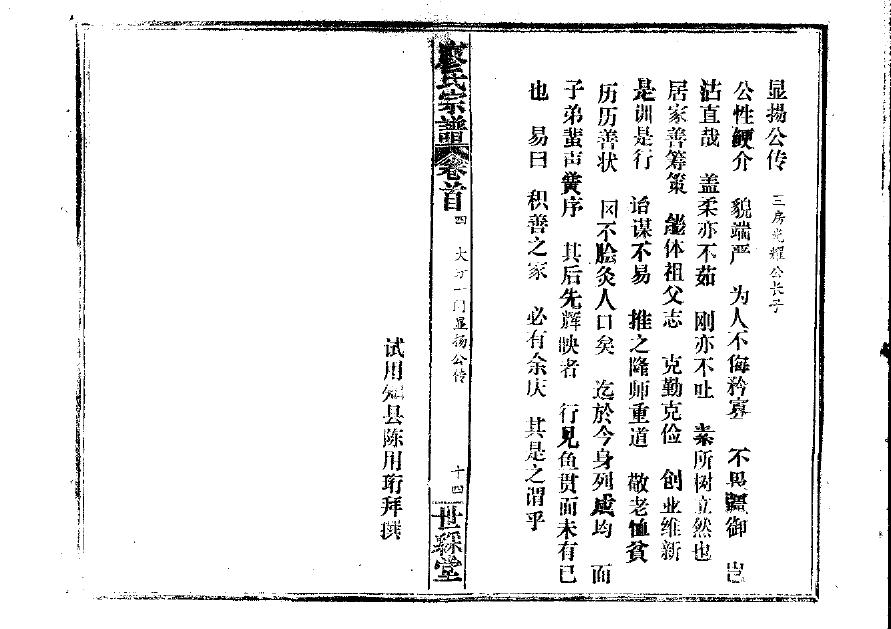 显扬公传 三房光耀公长子
公性鲠介 貌端严 为人不侮矜寡 不畏疆御 岂
沽直哉 盖柔亦不茹 刚亦不吐 素所树立然也
居家善筹策 能体祖父志 克勤克俭 创业维新
是训是行 诒谋不易 推之隆师重道 敬老恤贫
历历善状 罔不脍灸人口矣 迄於今身列成均 而
子弟蜚声黉序 其后先辉映者 行见鱼贯而未有已
也 易曰 积善之家 必有余庆 其是之谓乎
廖氏宗谱 卷首 四 大分一门显扬公传 十四 世綵堂
试用知县陈用珩拜撰